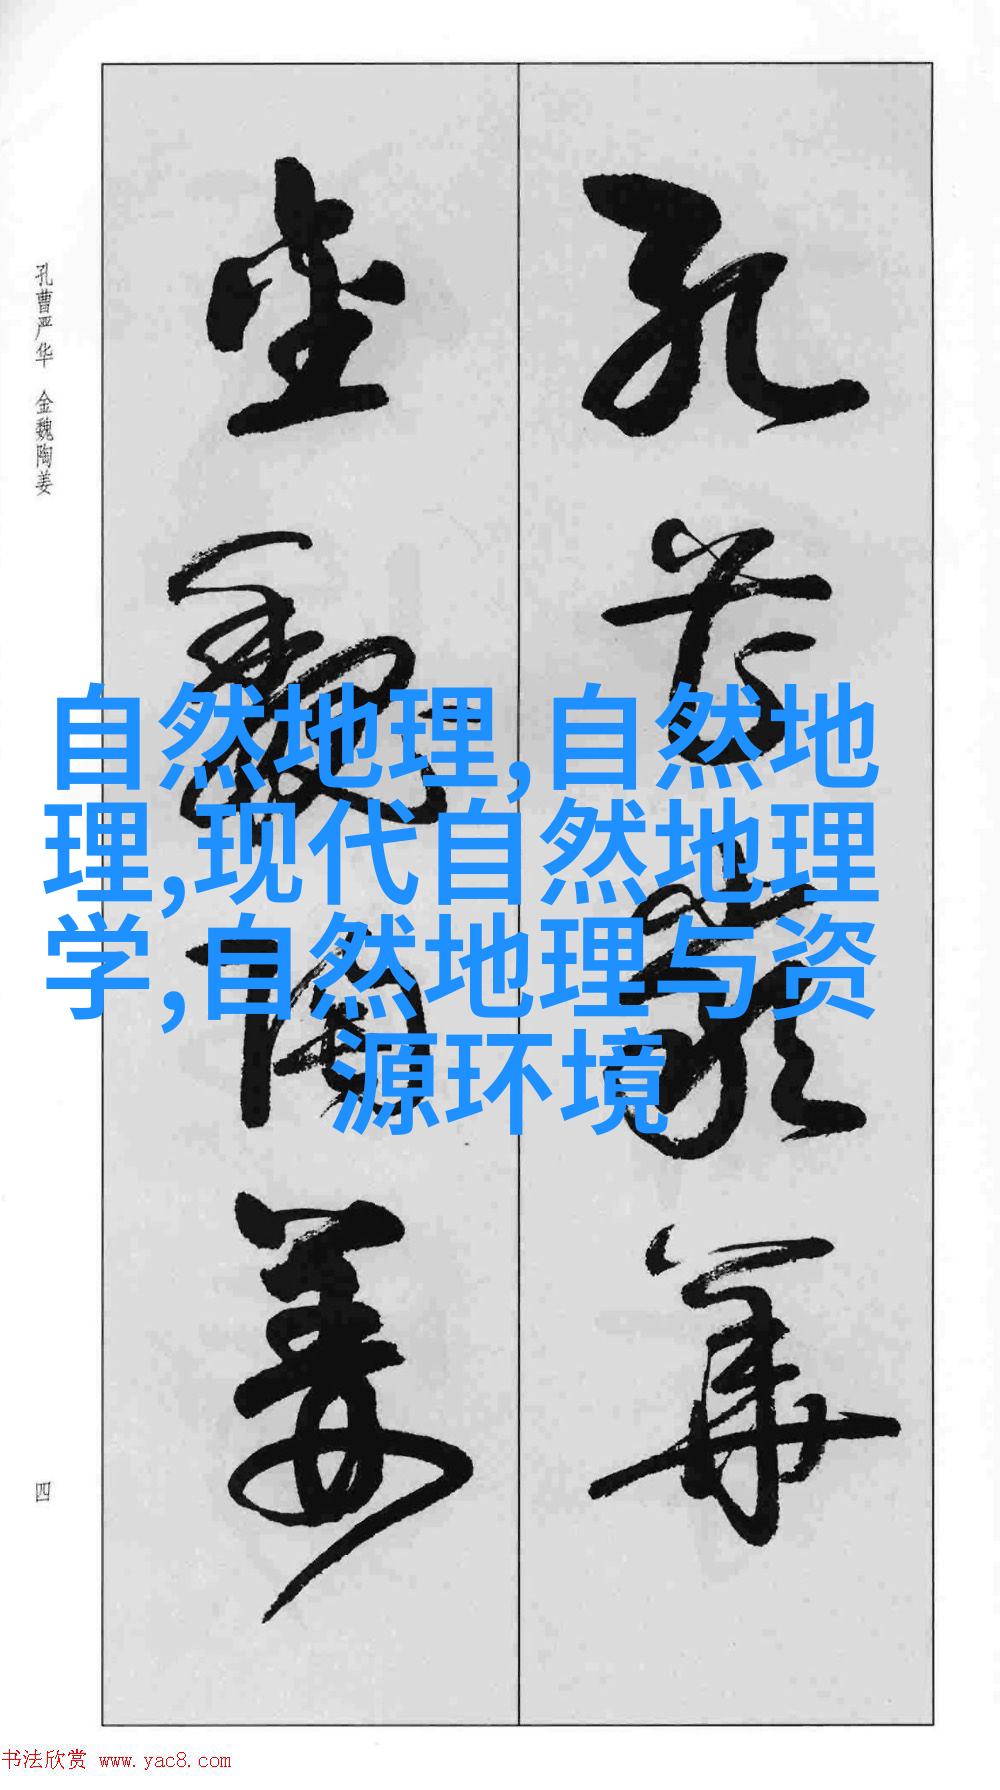 孔曹严华 金魏陶姜
孔曹嚴華
金魏陶姜
自然地理,自然地
理,现代自然地理
学,自然地理与资
源环境
四
书法欣赏 www.yac8.com